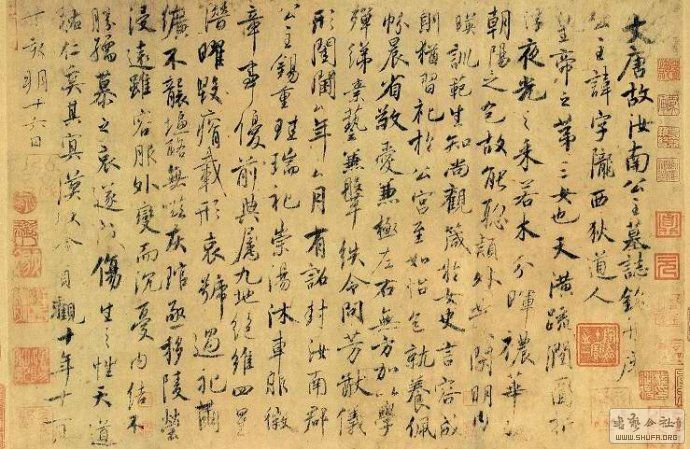 大唐故汝南公主墓誌銘并序
公主諱字隴西狄道人
皇帝之第三女也天潢疏潤圓折
浮夜光之采若木分暉穠華
朝陽之色故能聰穎外發閑明內
暎訓範生知尚觀箴於女史言容成
則猶習禮於公宮至如怡色就養佩
帉晨省敬愛兼極左右無方加以學
殫綈素藝兼鞶紩令問芳猷儀
形閨閫年月有詔封汝南郡
公主錫重珪瑞禮崇湯沐車服徽
章事優前典屬九地絕維四星
潛曜毀瘠載形哀號過禮繭
纊不襲塩酪無嗞灰琯亟移陵塋
浸遠雖容服外變而沉憂內結不
勝孺慕之哀遂成傷生之性天道
祐仁奚其冥漠以今貞觀十年十一月
丁亥朔十六日
書藝公社
WWW.SHUFA.ORG